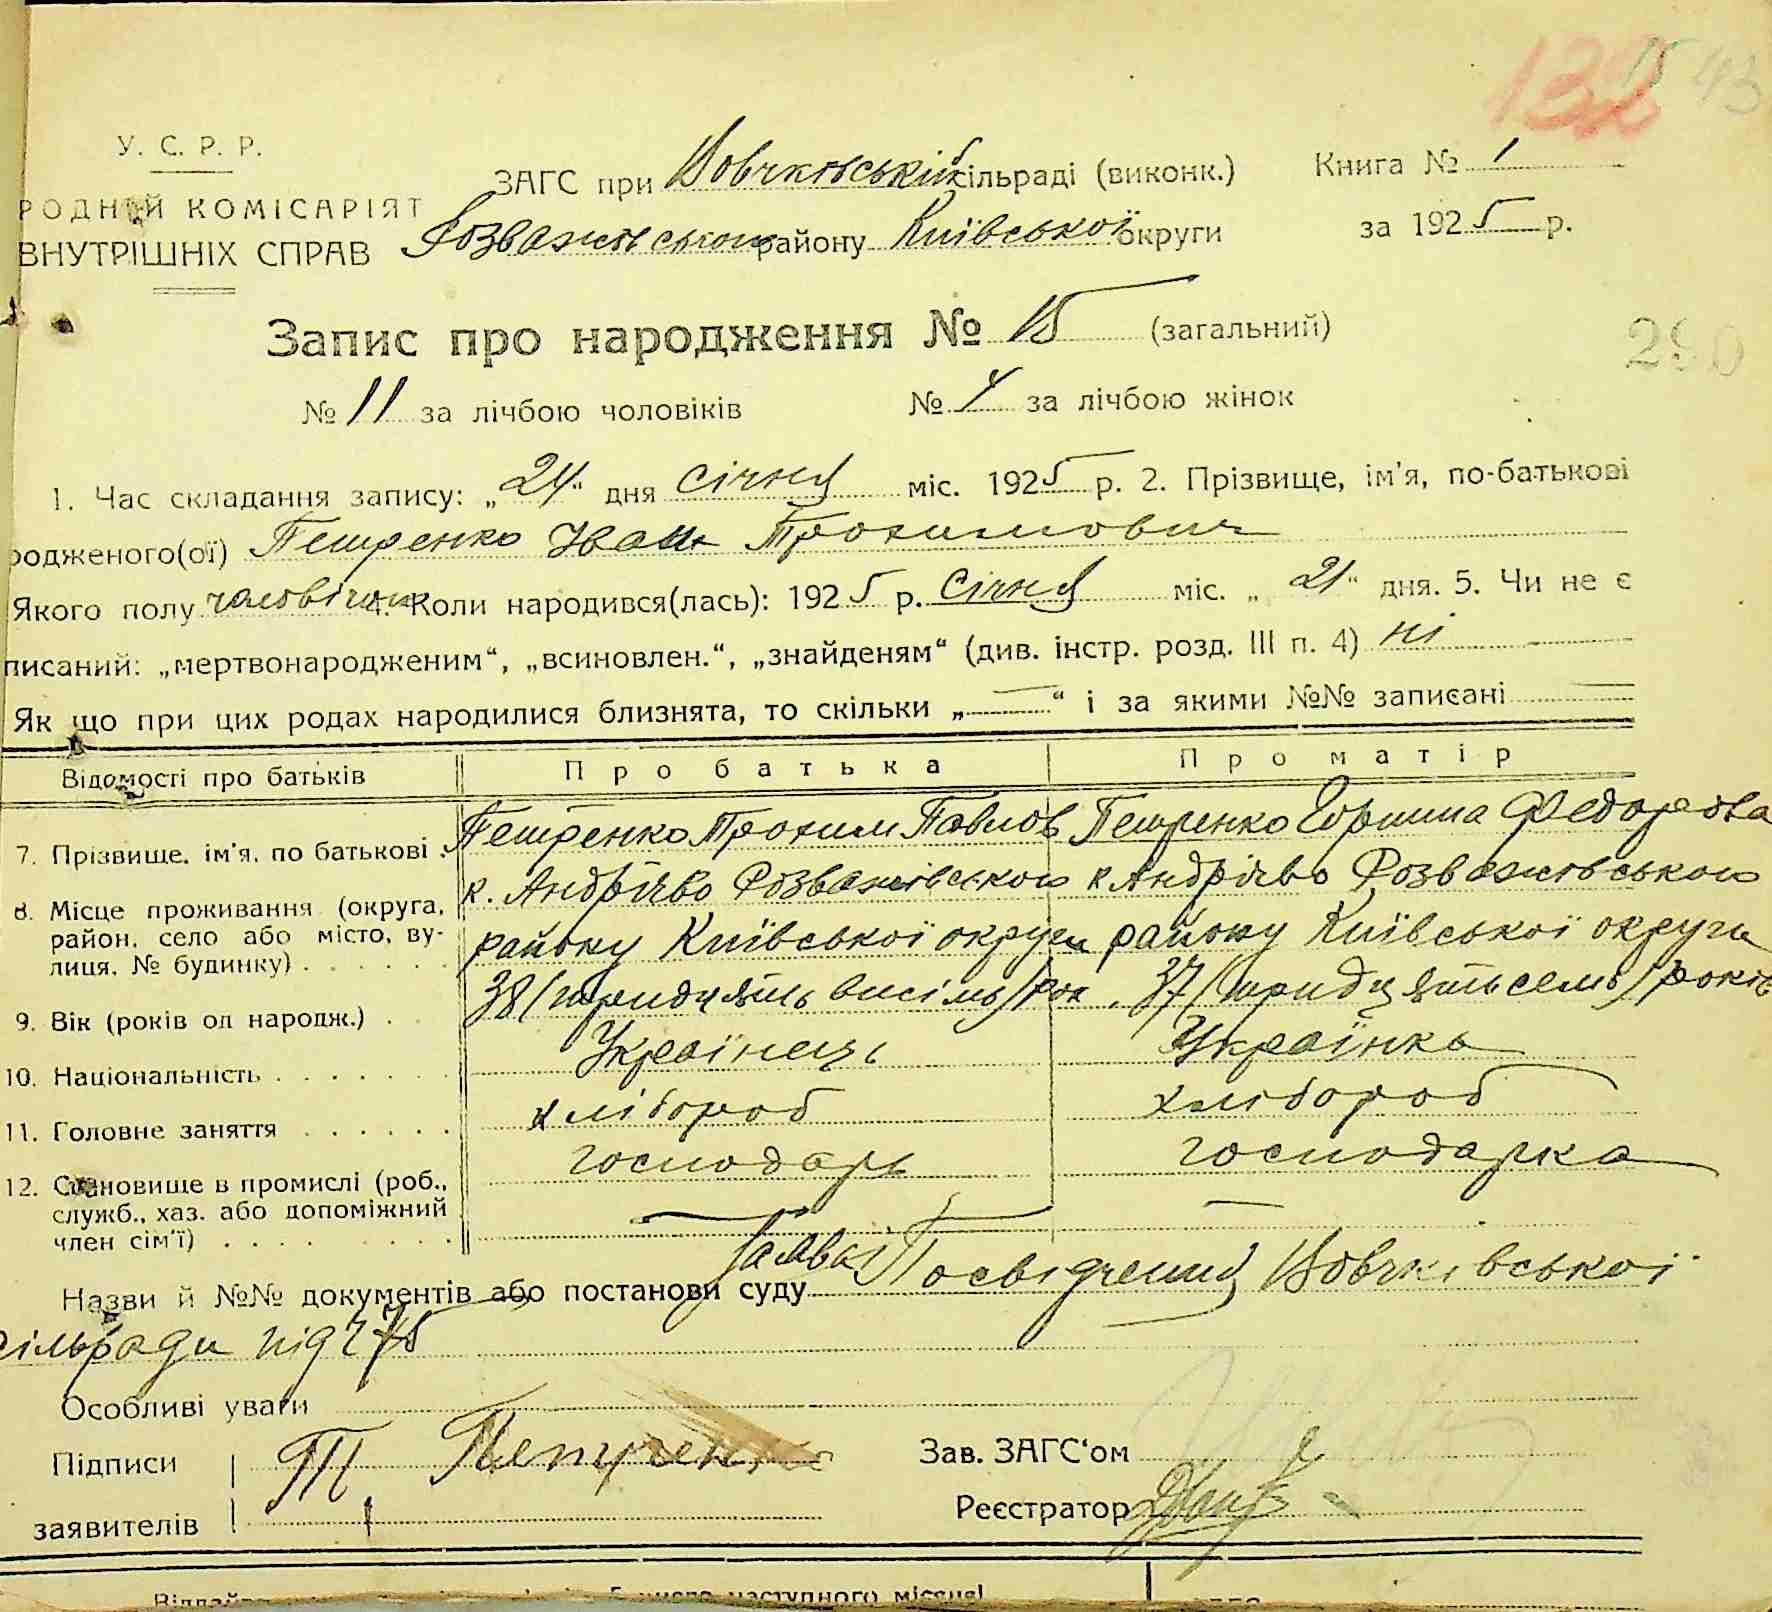 132 15 43
У. С. Р. Р.
РОДНИЙ КОМІСАРІЯТ
ВНУТРІШНІХ СПРАВ
ЗАГС при Вовчківській сільраді (виконк.)
Розважівського району Київської округи
Книга № 1
за 1925 р.
Запис про народження № 15 (загальний)
290
№ 11 за лічбою чоловіків № 4 за лічбою жінок
1. Час складання запису: „24“ дня січня міс. 1925 р. 2. Прізвище, ім'я, по-батькові
родженого(ої) Петренко Іван Трохимович
Якого полу чоловічого 4. Коли народився(лась): 1925 р. січня міс. „21“ дня. 5. Чи не є
писаний: „мертвонародженим“, „всиновлен.“, „знайденям“ (див. інстр. розд. III п. 4) ні
Як що при цих родах народилися близнята, то скільки „—“ і за якими №№ записані
Відомості про батьків Про батька Про матір
7. Прізвище, ім'я, по батькові . Петренко Трохим Павлов Петренко Горпина Федорова
8. Місце проживання (округа, район, село або місто, вулиця, № будинку) . . . . . . к. Андріїво Розважівського району Київської округи к Андріїво Розважівського району Київської округи
9. Вік (років од народж.) . . 38 (тридцять висімь) рок 37 (тридцятьсемь) років
10. Національність . . . . . . Українець Українка
11. Головне заняття . . . . . . хлібороб хлібороб
12. Становище в промислі (роб., служб., хаз. або допоміжний член сім'ї) . . . . . . . . господарь господарка
Назви й №№ документів або постанови суду Заява і Посвідчення Вовчківської
сільради під ч 75
Особливі уваги
Підписи Т. Петренко Зав. ЗАГС‘ом
заявителів Реєстратор
число наступного місяця!